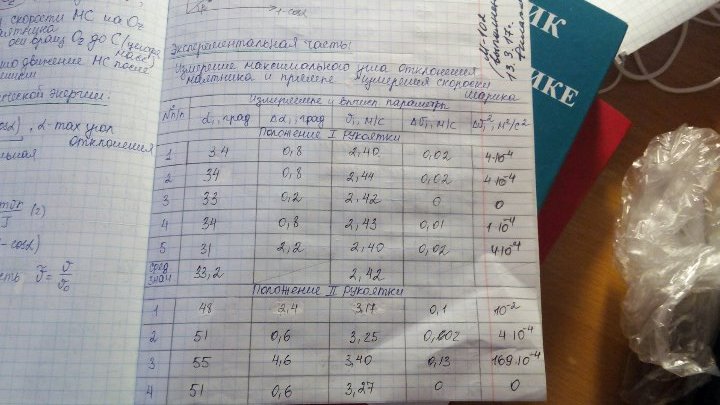 скорости МС на Oz
оси вращ Oz до C (центра
масс
движение МС после
энергии:
α-max угол
отклонения
(2)
v̄ = v/v₀
1-cosα
Экспериментальная часть:
13.3.17.
Измерение максимального угла отклонения
маятника и прямые измерения скорости
шарика
ИК
ИКЕ
№ п/п Измеренные и вычисл. параметры
αᵢ, град Δαᵢ, град vᵢ, м/с Δvᵢ, м/с Δvᵢ², м²/с²
Положение I Рукоятки
1 34 0,8 2,40 0,02 4·10⁻⁴
2 34 0,8 2,44 0,02 4·10⁻⁴
3 33 0,2 2,42 0 0
4 34 0,8 2,43 0,01 1·10⁻⁴
5 31 2,2 2,40 0,02 4·10⁻⁴
сред. знач 33,2 2,42
Положение II Рукоятки
1 48 2,4 3,17 0,1 10⁻²
2 51 0,6 3,25 0,002 4·10⁻⁴
3 55 4,6 3,40 0,13 169·10⁻⁴
4 51 0,6 3,27 0 0